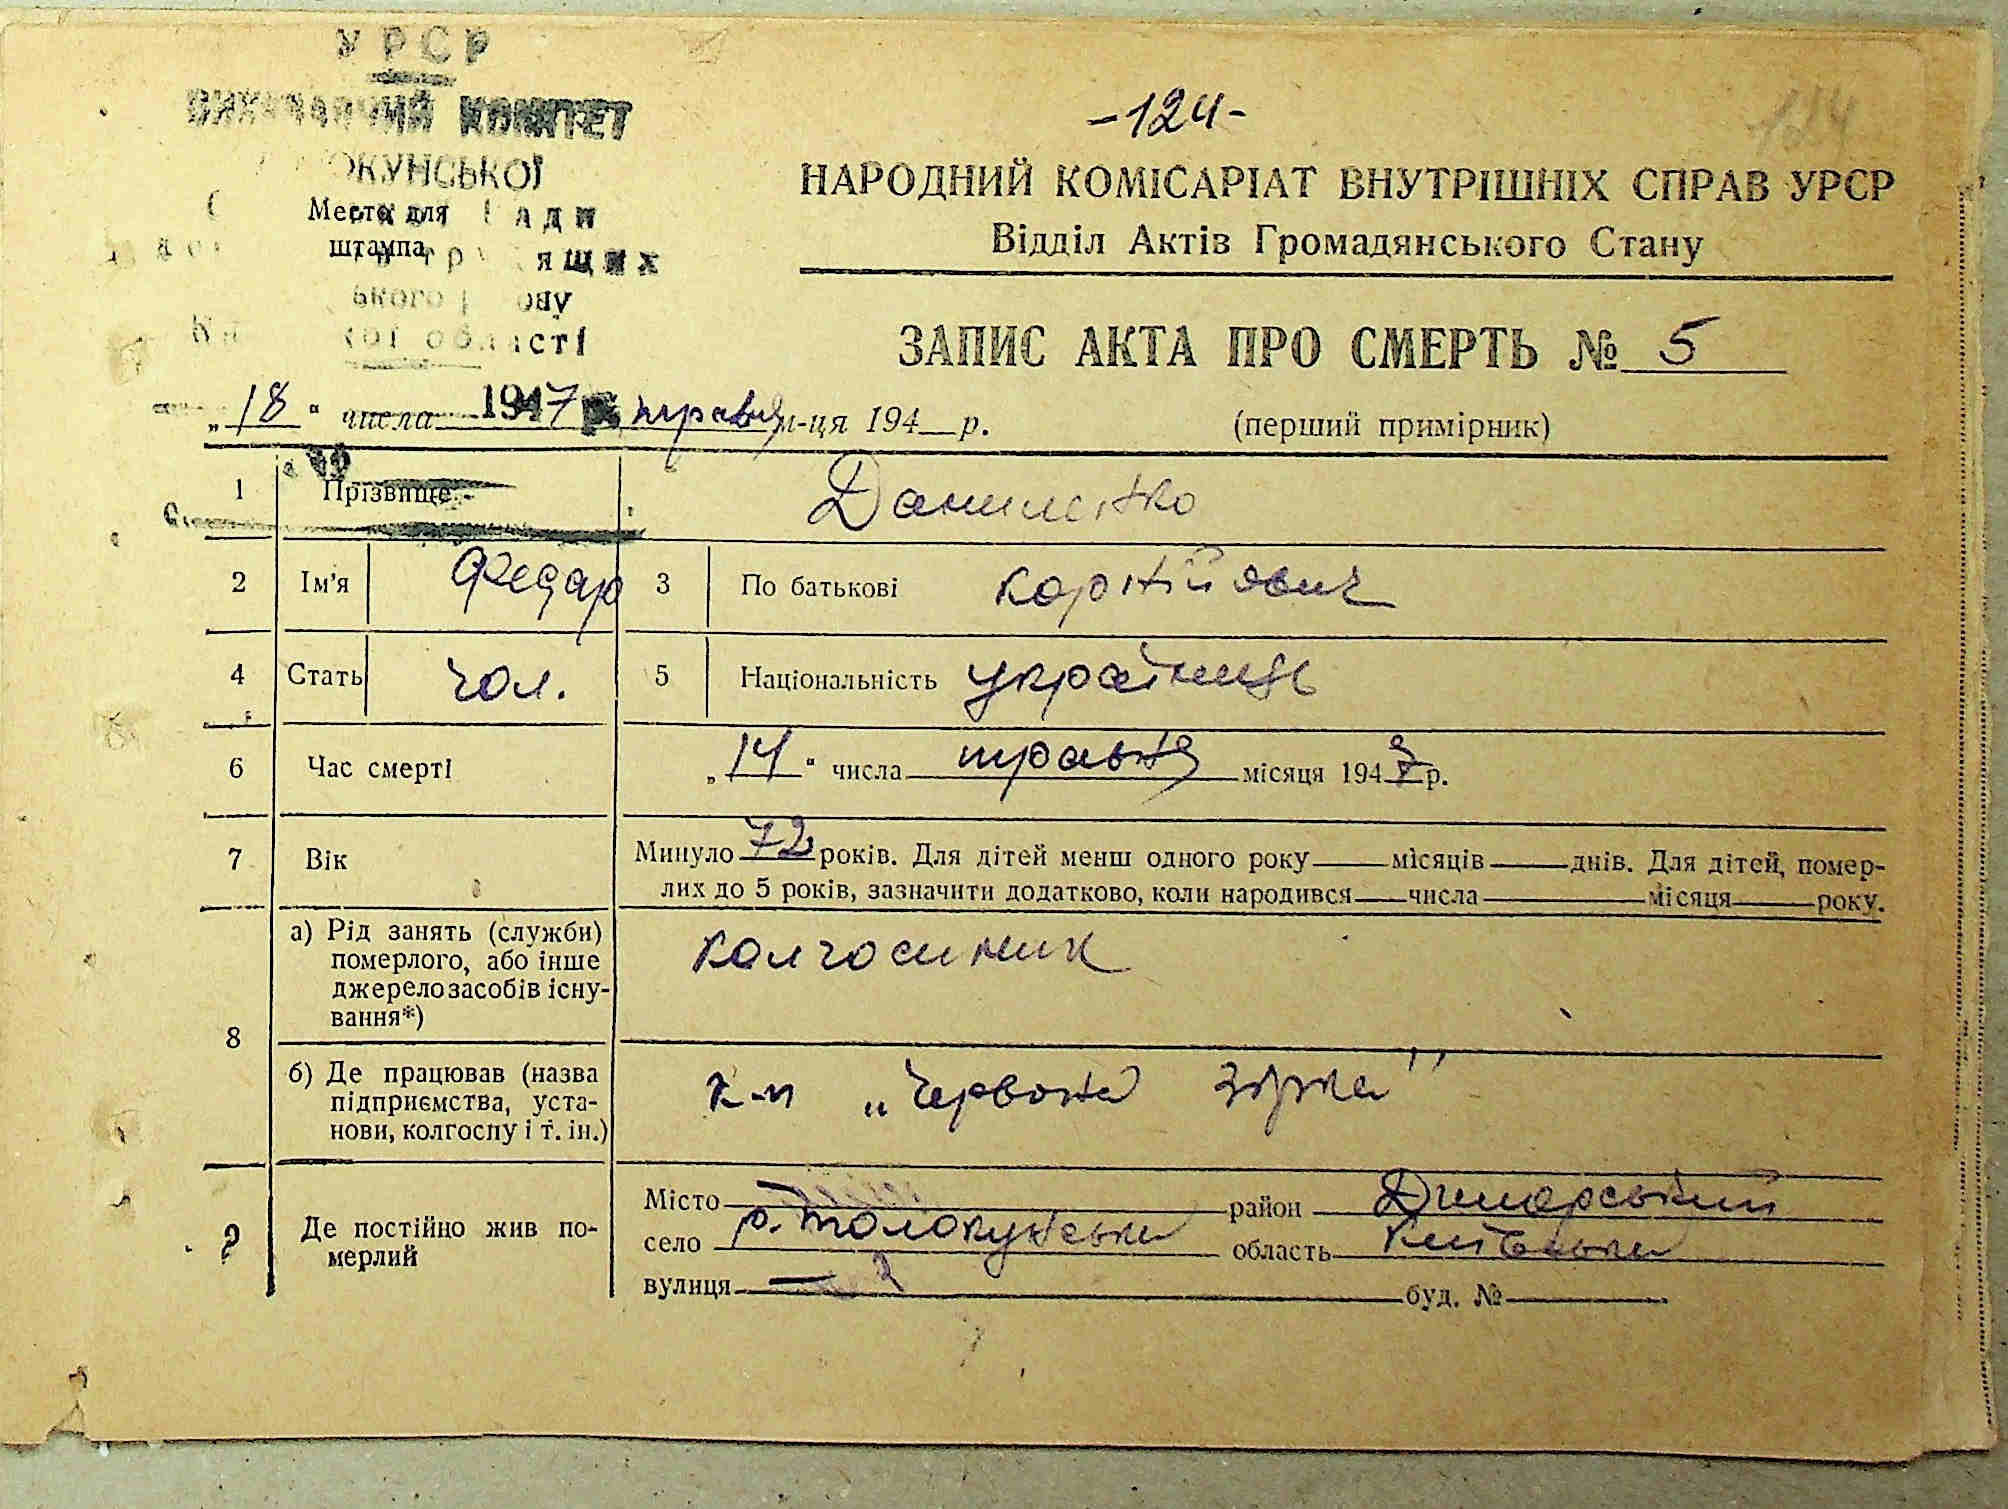 УРСР
ВИКОНАВЧИЙ КОМІТЕТ
ОКУНСЬКОЇ
Место для
штампа
ради
трудящих
ського району
області
-124-
124
НАРОДНИЙ КОМІСАРІАТ ВНУТРІШНІХ СПРАВ УРСР
Відділ Актів Громадянського Стану
ЗАПИС АКТА ПРО СМЕРТЬ № 5
„18“ числа 1947 р травня м-ця 194 р.
(перший примірник)
1 Прізвище
2 Ім'я Федар 3 По батькові Корнійович
4 Стать чол. 5 Національність українець
6 Час смерті „14“ числа травня місяця 1947 р.
7 Вік Минуло 72 років. Для дітей менш одного року місяців днів. Для дітей, помер-
лих до 5 років, зазначити додатково, коли народився числа місяця року.
8 а) Рід занять (служби)
померлого, або інше
джерело засобів існу-
вання*)
колгоспник
б) Де працював (назва
підприємства, уста-
нови, колгоспу і т. ін.)
к-п „Червона зірка"
9 Де постійно жив по-
мерлий
Місто — район Димарський
село р. Толокунська область Київська
вулиця — буд. №